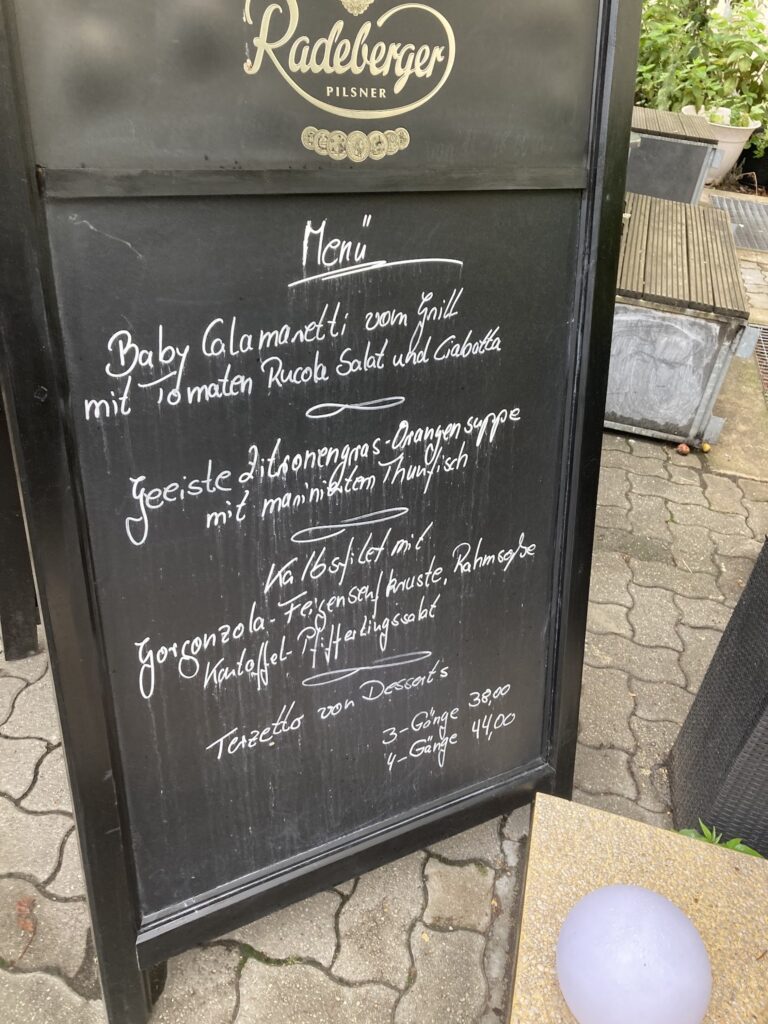 Radeberger
PILSNER
Menü
Baby Calamaretti vom Grill
mit Tomaten Rucola Salat und Ciabatta
Geeiste Zitronengras-Orangensuppe
mit mariniertem Thunfisch
Kalbsfilet mit
Gorgonzola-Feigensenfkruste, Rahmsoße
Kartoffel-Pfifferlingssalat
Terzetto von Desserts
3-Gänge 38,00
4-Gänge 44,00